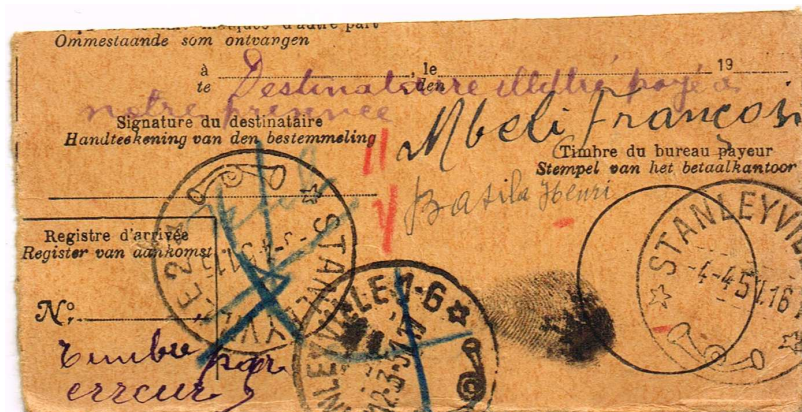 Ommestaande som ontvangen
à te, le den 19
Destinataire illettré payé à
notre présence
Signature du destinataire
Handteekening van den bestemmeling
Mbeli François
Timbre du bureau payeur
Stempel van het betaalkantoor
Basila Henri
Registre d'arrivée
Register van aankomst
Nº
Timbre par
erreur
STANLEYVILLE
STANLEYVILLE-1-6
STANLEYVILLE